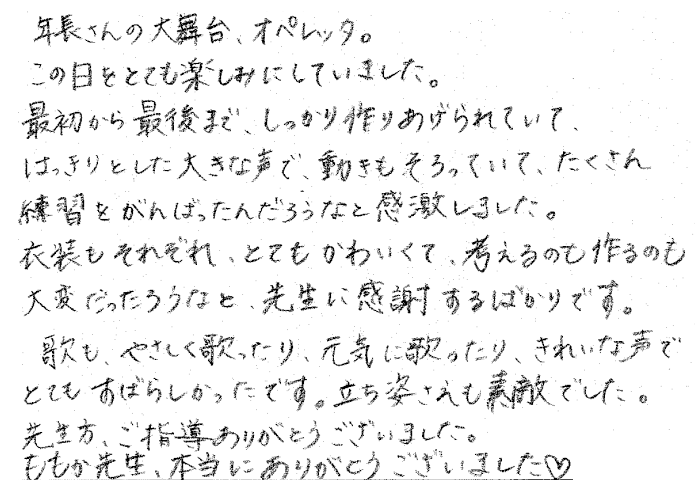 年長さんの大舞台、オペレッタ。
この日をとても楽しみにしていました。
最初から最後まで、しっかり作りあげられていて、
はっきりとした大きな声で、動きもそろっていて、たくさん
練習をがんばったんだろうなと感激しました。
衣装もそれぞれ、とてもかわいくて、考えるのも作るのも
大変だったろうなと、先生に感謝するばかりです。
歌も、やさしく歌ったり、元気に歌ったり、きれいな声で
とてもすばらしかったです。立ち姿さえも素敵でした。
先生方、ご指導ありがとうございました。
ももか先生、本当にありがとうございました♡